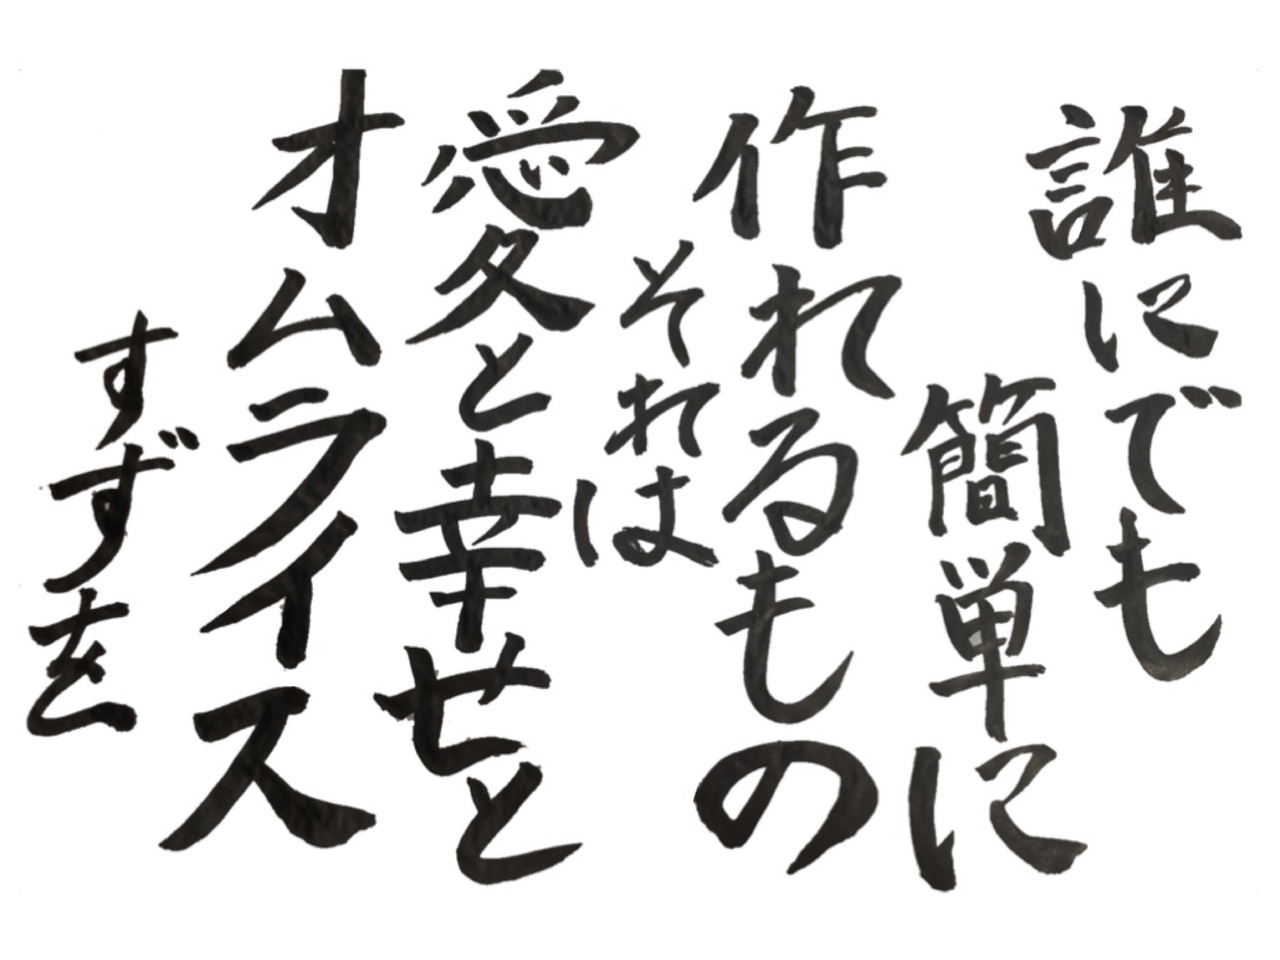 誰にでも
簡単に
作れるもの
それは
愛と幸せと
オムライス
すずを